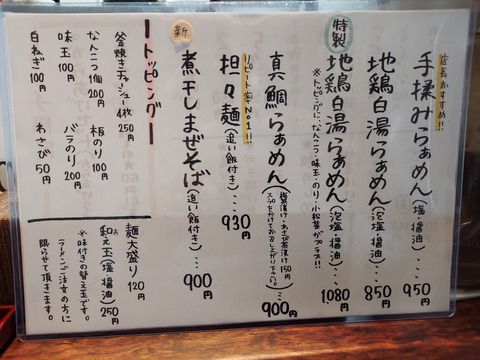 店長おすすめ!!
手揉みらぁめん(塩・醤油)…950円
地鶏白湯らぁめん(塩・醤油)…850円
特製
地鶏白湯らぁめん(塩・醤油)…1080円
※トッピングに、なんこつ・味玉・のり・小松菜がプラス!!
真鯛らぁめん…900円
わさび茶漬け150円
スープをかけてお召し上がり下さい。
リピート率No1!!
担々麺(追い飯付き)…930円
新
煮干しまぜそば(追い飯付き)…900円
トッピング
釜焼きチャーシュー4枚250円
なんこつ1個200円
板のり100円
味玉100円
バラのり200円
白ねぎ100円
わさび50円
麺大盛り120円
和え玉(塩・醤油)250円
※味付きの替え玉です。
ラーメンご注文の方に
限らせて頂きます。